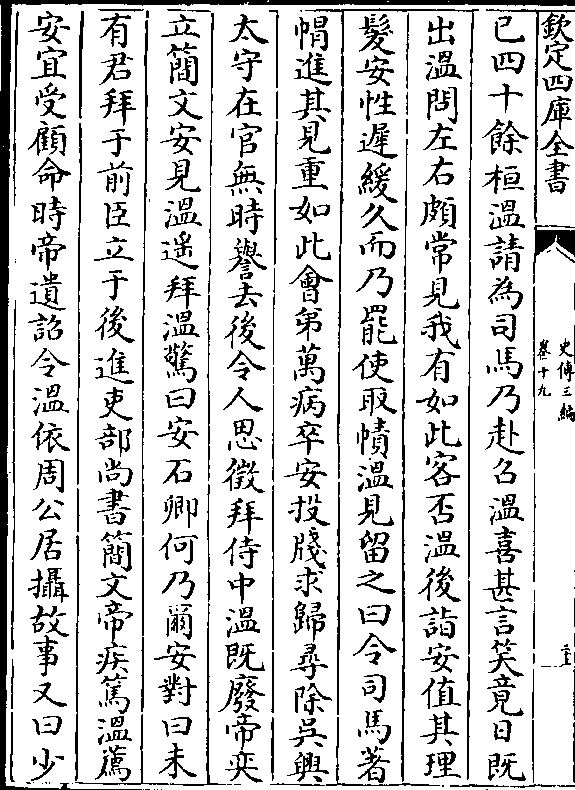 欽定四庫全書
史傳三編
卷十九
已四十餘桓溫請為司馬乃赴召溫喜甚言笑竟日既
出溫問左右頗常見我有如此客否溫後詣安值其理
髮安性遲緩久而乃罷使取幘溫見留之曰令司馬著
帽進其見重如此會弟萬病卒安投牋求歸尋除吳興
太守在官無時譽去後令人思徵拜侍中溫既廢帝奕
立簡文安見溫遥拜溫驚曰安石卿何乃爾安對曰未
有君拜于前臣立于後進吏部尚書簡文帝疾篤溫薦
安宜受顧命時帝遺詔令溫依周公居攝故事又曰少